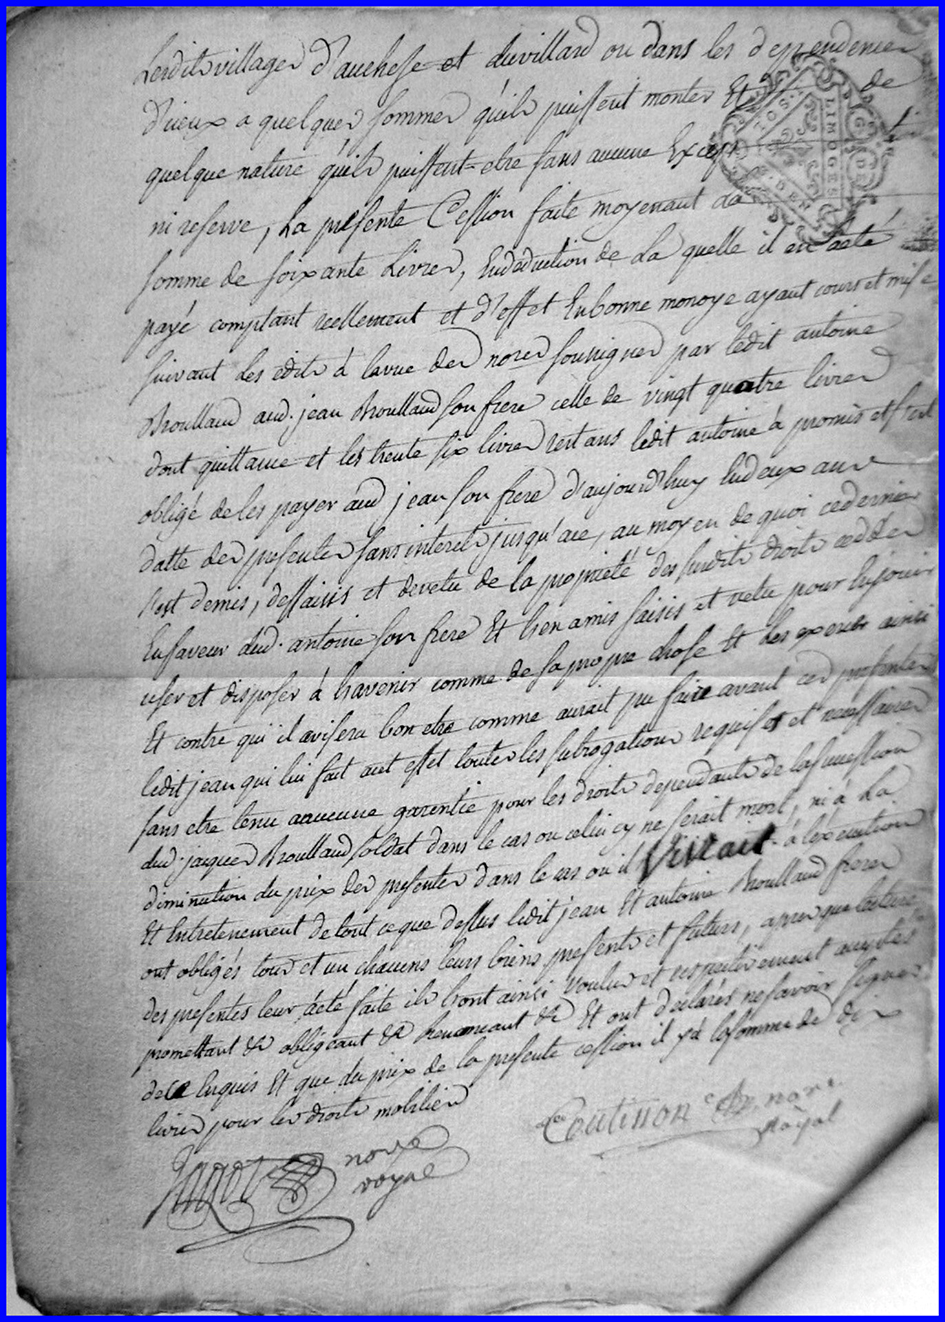 Lesdits villages d'auchese et duvillard ou dans les dependences
d'iceux a quelques sommes quils puissent monter Et de
quelque nature quils puissent etre sans aucune Excep
ni reserve, La presente Cession faite moyenant la
somme de soixante Livres, Endeduction de La quelle il en àété
payé comptant reellement et d'effet Enbonne monoye ayant cours et mise
suivant les edits à lavue des nores soussignes par ledit antoine
Broullaud aud. jean Broullaud son frere celle de vingt quatre livres
dont quittance et les trente six livres restans ledit antoine à promis et s'est
obligé de les payer aud jean son frere d'aujourd'huy Endeux ans
datte des presentes sans interets jusqu'ace, au moyen de quoi cedernier
s'est demis, dessaisis et devetu de la propriété des susdits droits cedés
Enfaveur dud. antoine son frere Et l'en amis saisis et vetu pour Enjouir
user et disposer à l'avenir comme de sa propre chose Et les exercer ainsi
Et contre qui il avisera bon etre comme aurait pu faire avant ces presentes
ledit jean qui lui fait aut effet toutes les subrogations requises et necessaires
sans etre tenu aaucune garentie pour les droits dependants de la succession
dud. jacques Broullaud soldat dans le cas ou celui cy ne serait mort, ni à La
diminution du prix des presentes dans le cas ou il Vivrait. à léxécution
Et Entretenement de tout ce que dessus ledit jean Et antoine Broullaud freres
ont obligés tous et un chacuns leurs biens presents et futurs, apres que lecture
des presentes leur àété faite ils l'ont ainsi voulu et respectivement acceptés
promettant &c obligeant &c Renonceant &c Et ont déclarés ne savoir signer
dece Enquis Et que du prix de la presente cession il y à la somme de dix
livres pour les droits mobiliers
Coutisson nore
Royal
nore
royal
LIMOGES